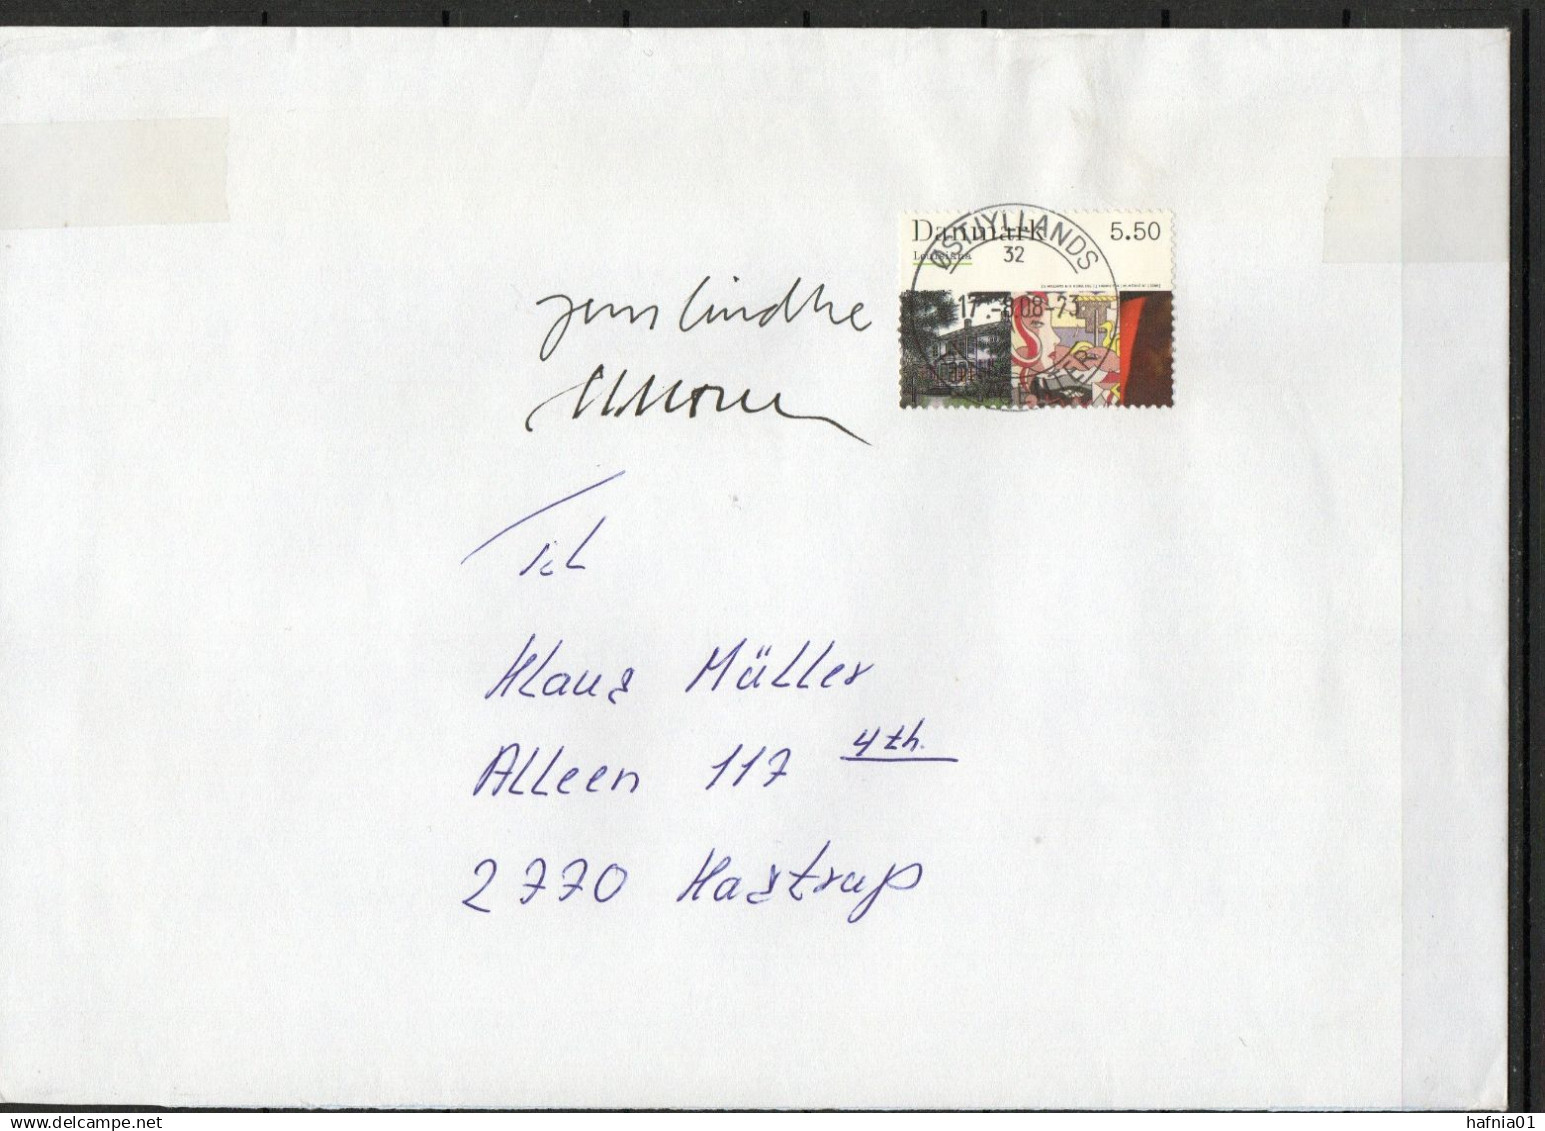 Danmark 5.50
Louisiana
ØSTJYLLANDS
32
17.-8.08-23
Til
Klaus Müller
Alleen 117 4th.
2770 Kastrup
delcampe.net
hafnia01